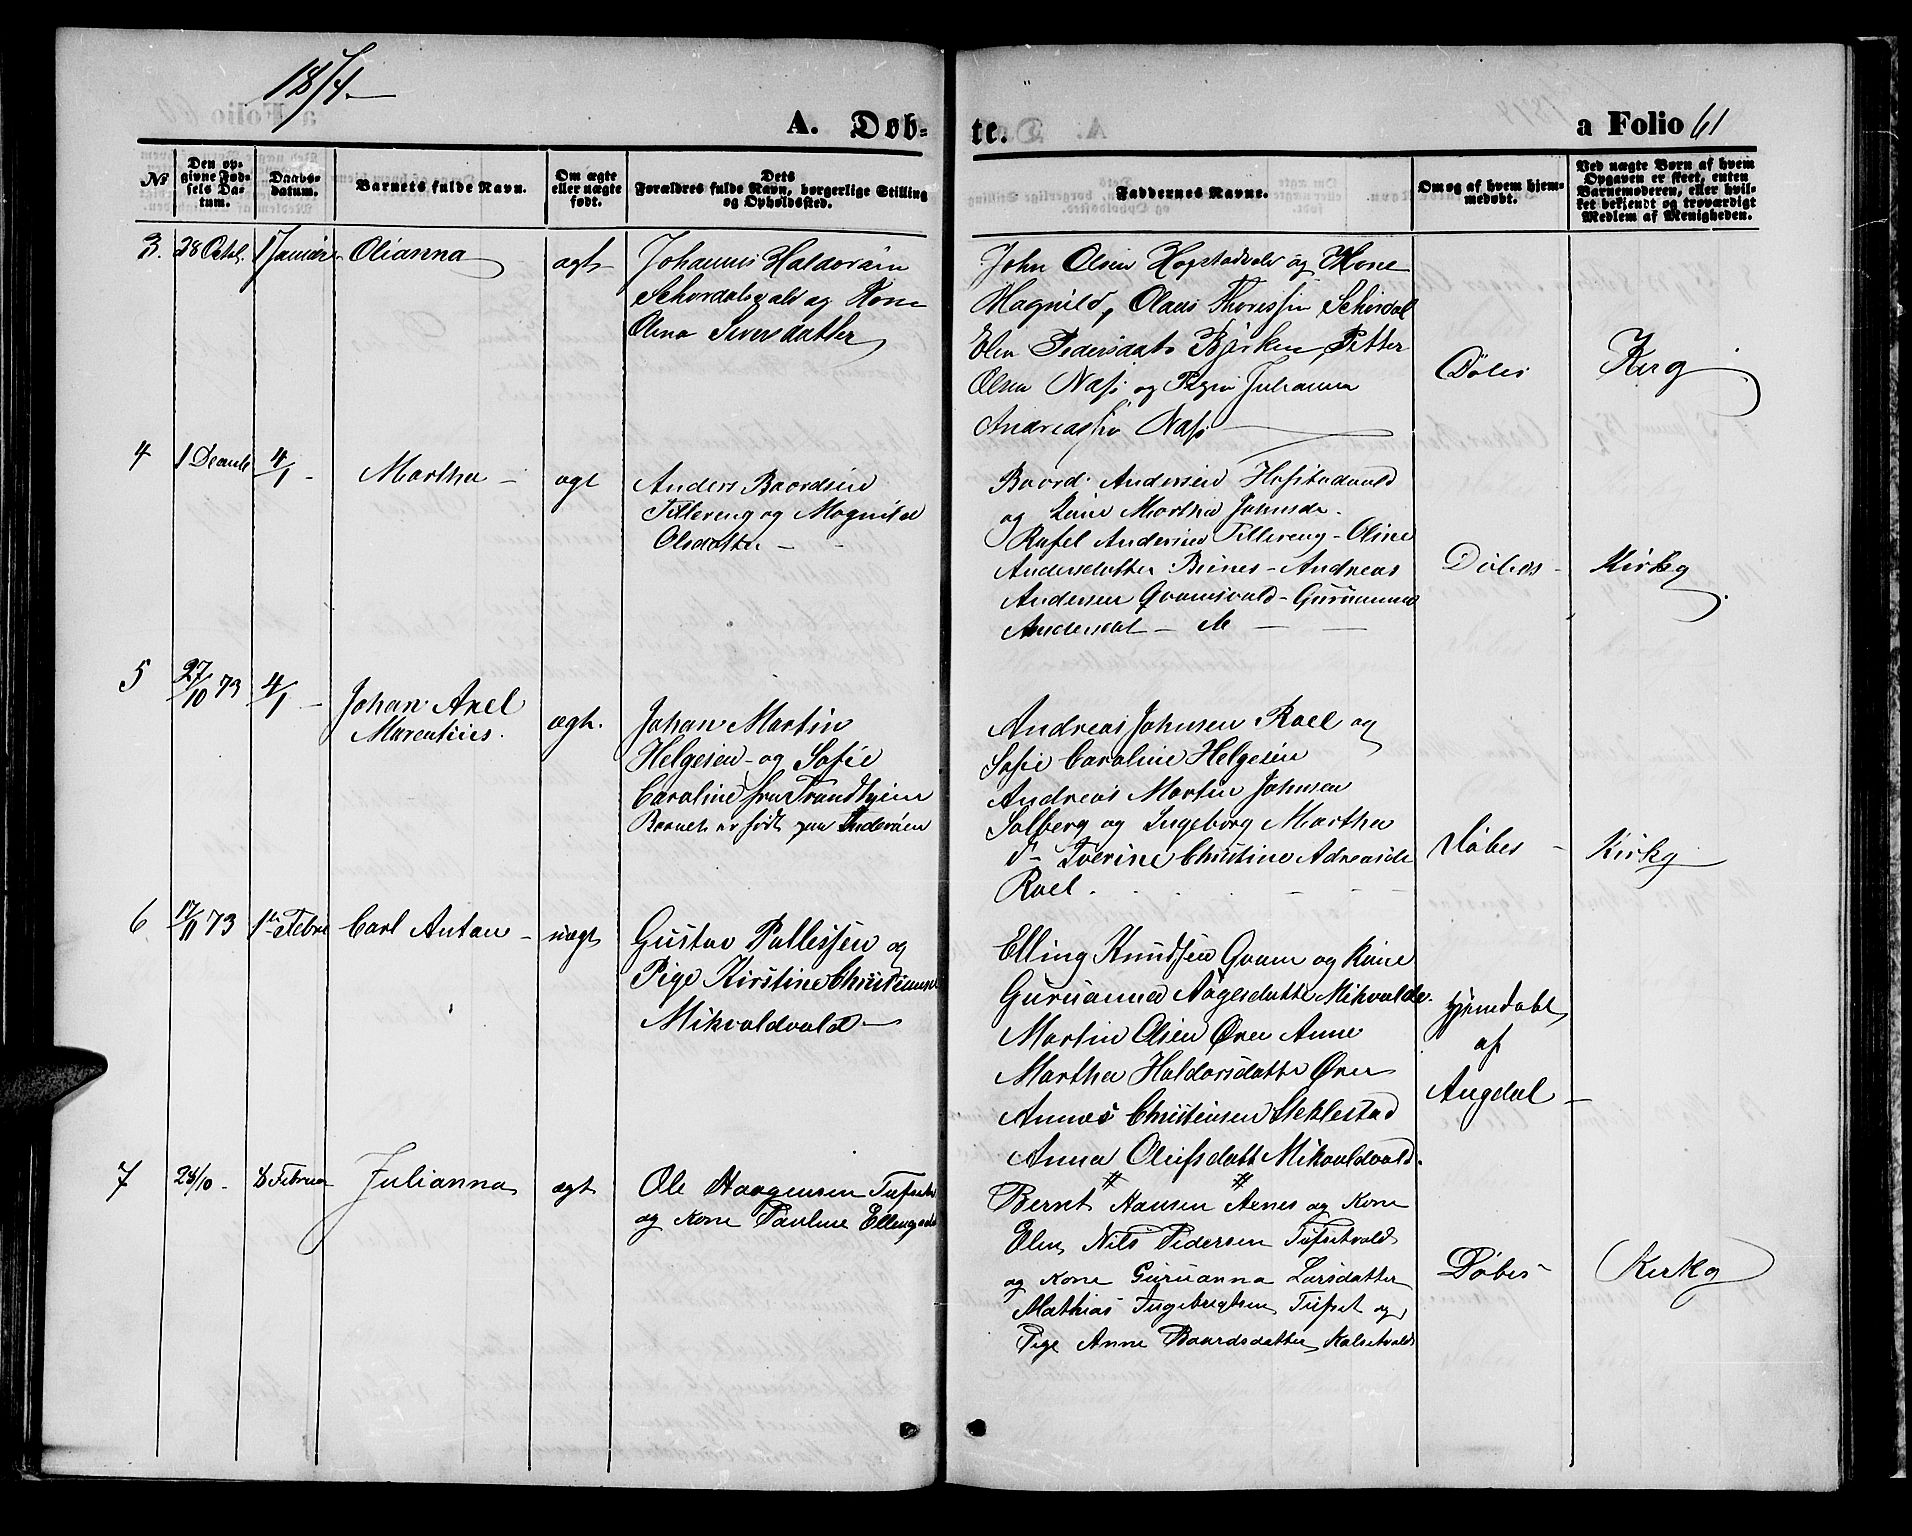 1874
A. Døb-
te.
a Folio 61
№
Den op-
givne Fød-
sels Da-
tum.
Daabs-
datum.
Barnets fulde Navn.
Om ægte
eller uægte
født.
Dets
Forældres fulde Navn, borgerlige Stilling
og Opholdssted.
Faddernes Navne.
Om og af hvem hjem-
medøbt.
Ved uægte Børn af hvem
Opgaven er skeet, enten
Barnemoderen, eller hvil-
ket bekjendt og troværdigt
Medlem af Menigheden.
3. 28 Octbl. 1 Januar Olianna ægt
Johannes Haldorsen
og Kone
Olina Siversdatter
John Olsen og Kone
Magnild, Olaus Thoresen
Elen Pedersdat Bjørken Petter
Olsen Næss og Pigen Julianna
Næss
Døbes
Kirg
4 1 4/1 - Martha - ægt
Anders Baordsen
Tillereng og Magnild
Olsdatter -
Baord Andersen
og Kone Martha Johnsda.
Rafel Andersen Tillereng - Oline
Andersdatter - Andreas
Andersen Qvamsvald - Guruanna
Andersdat -
Døbes -
Kirkg
5 27/10 73 4/1 - Johan Axel ægt.
Johan Martin
Helgesen - og Sofie
Caroline fra Trondhjem
Barnet er født paa Inderøen
Andreas Johnsen Roel og
Sofie Caroline Helgesen
Andreas Martin Johnsen
Salberg og Ingeborg Martha
Christine
Roel.
Døbes -
Kirkg
6 17/11 73 1 Febr Carl Anton - uægt
Gustav Pallessen og
Pige Kirstine
Mikvoldvald -
Elling Knudsen Qvam og Kone
Guruanna
Martin Olsen Øren Anne
Martha Haldorsdatte Øren
Christensen Steklestad
Anna Olufsdatt Mikvoldvald.
Hjemdøbt
af
Augdal -
7 28/10 - 8 Februar Julianna ægt
Ole Haagensen
og Kone Pauline
Bernt Hansen Aenes og Kone
Elen, Nils Pedersen
og Kone Guruanna Larsdatter
Mathias Ingebrigtsen Tufset og
Pige Anne Baardsdatter
Døbes
Kirkg